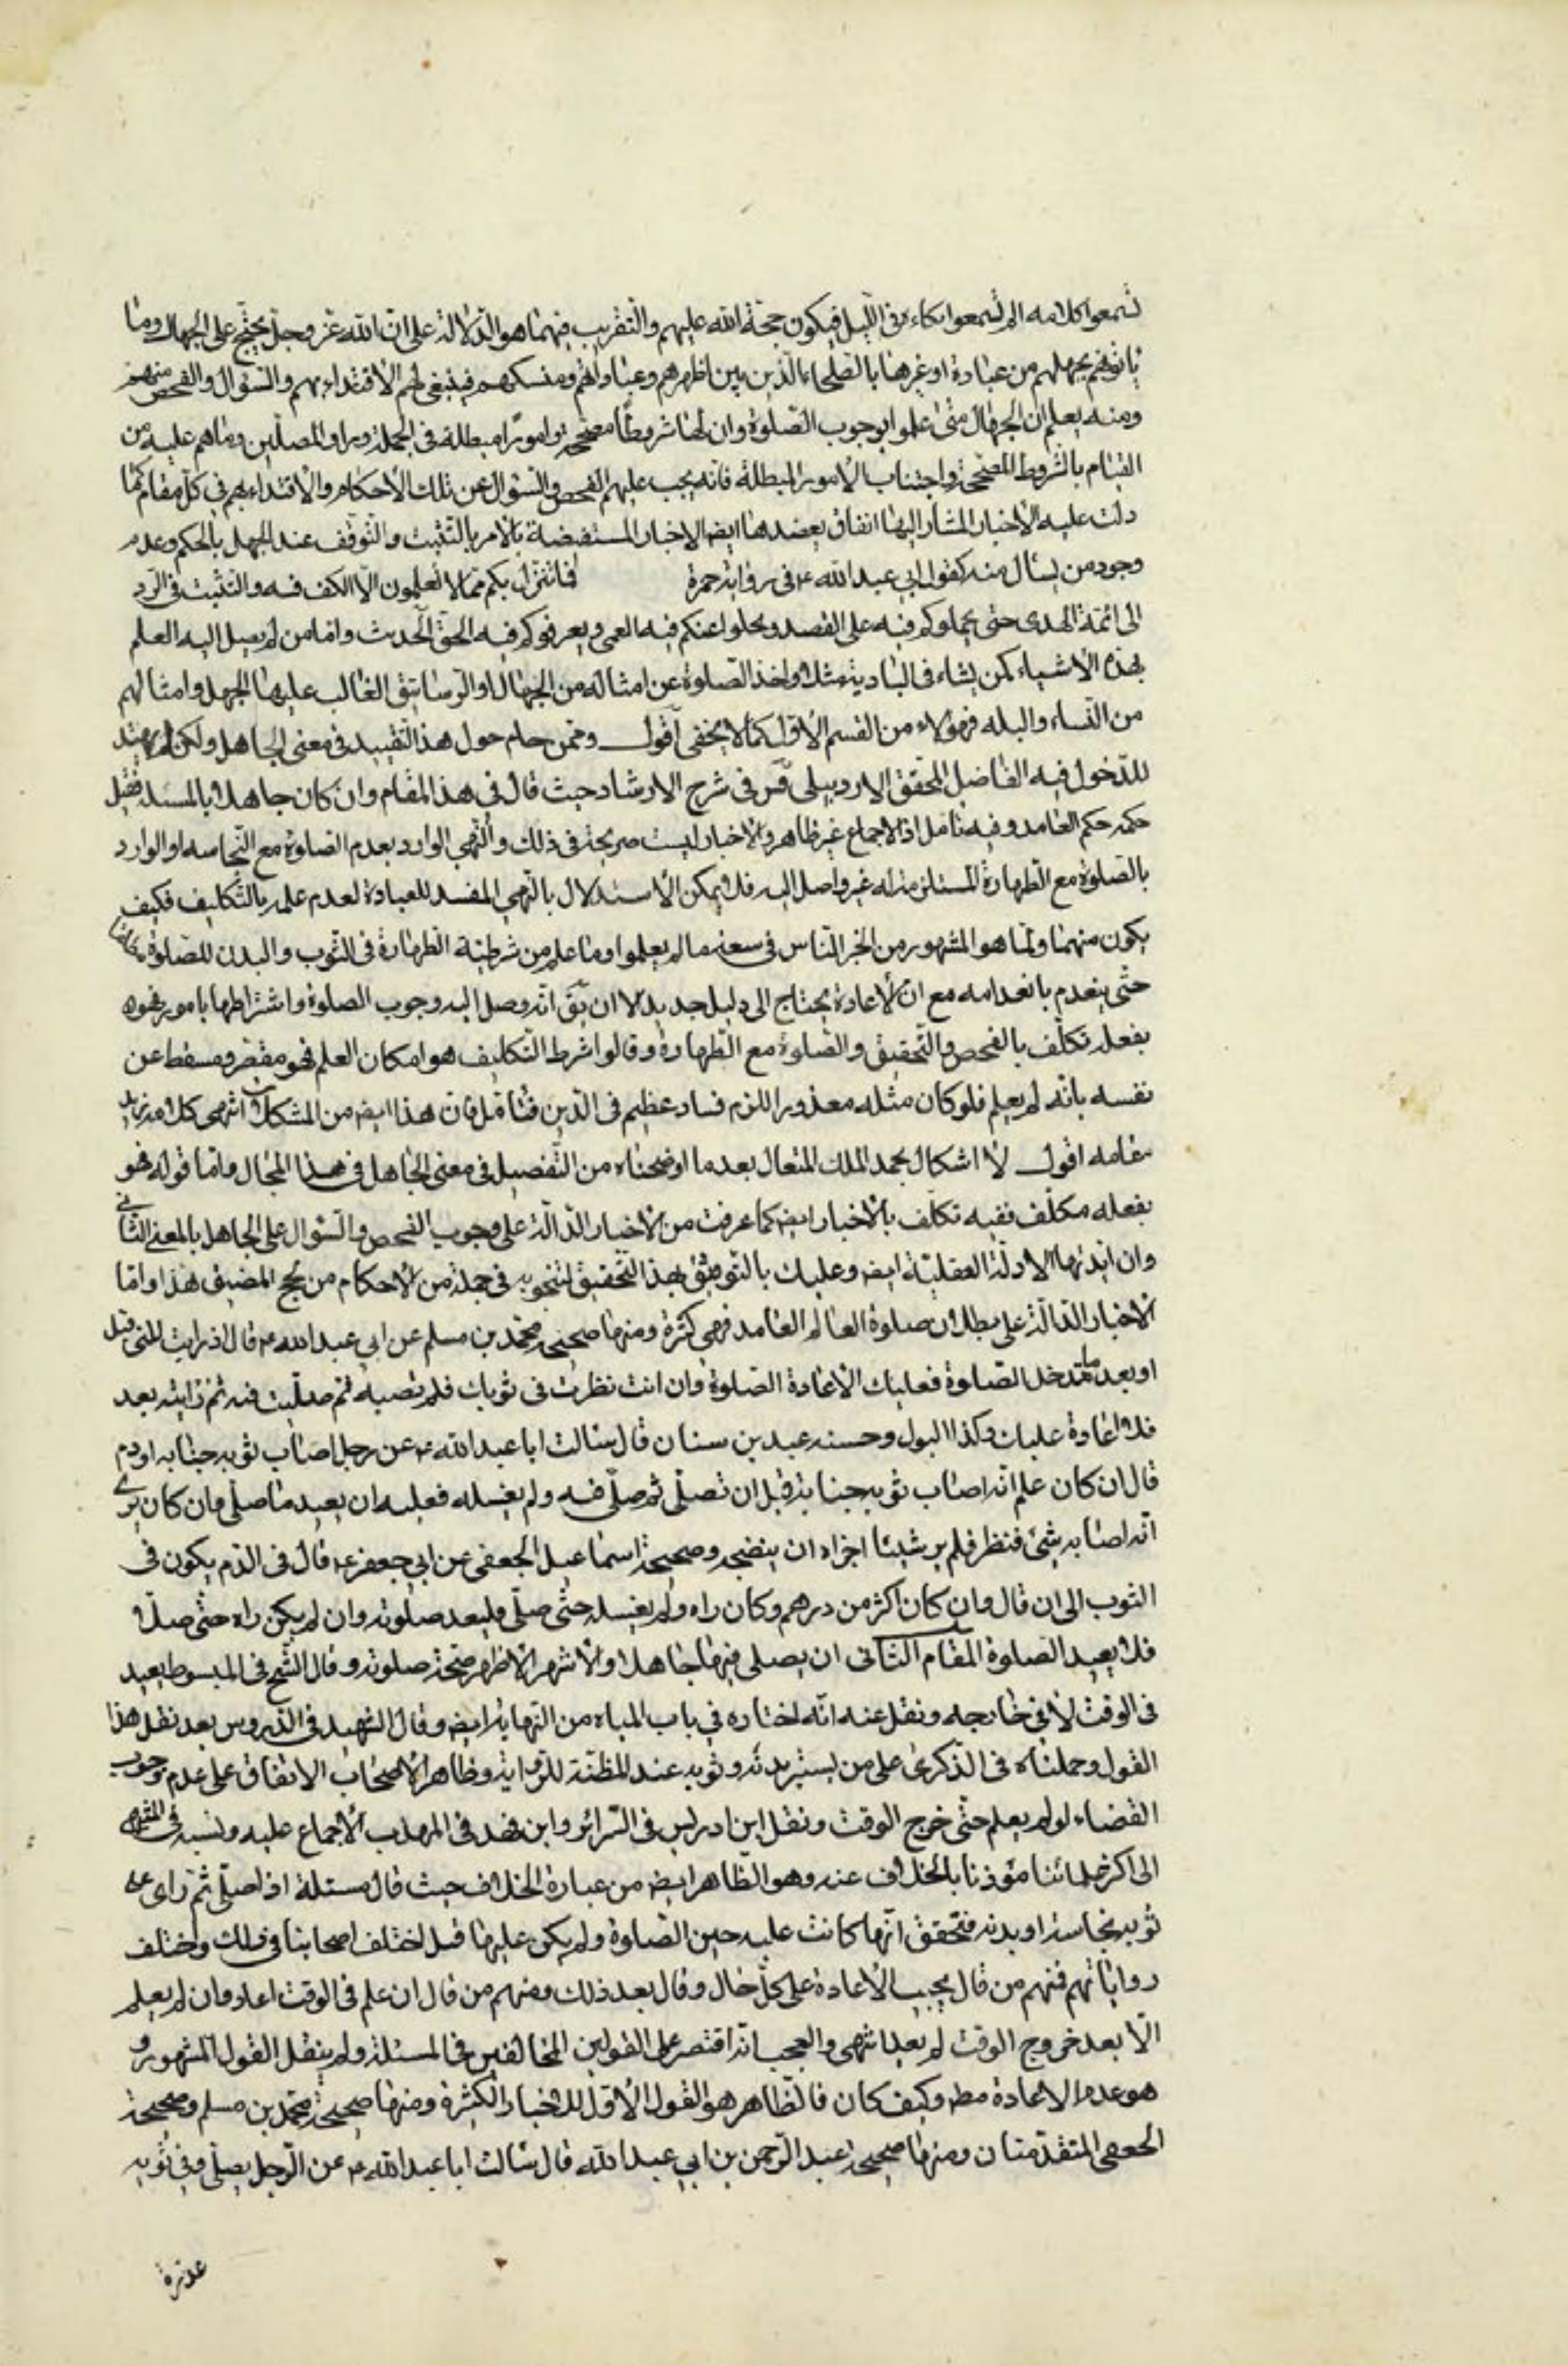 تسمعوا كلامه الم تسمعوا بكاءه في الليل فيكون حجة الله عليهم والتقريب فيهما هو الدلالة على ان الله عز وجل يحتج على الجهال وما
يأتونهم بجهلهم من عبادة او غيرها بالصلحاء الذين بين اظهرهم وعباداتهم ومنسكهم فينبغي لهم الاقتداء بهم والسؤال والفحص منهم
ومنه يعلم ان الجهال متى علموا بوجوب الصلوة وان لها شروطا مصححة وامورا مبطلة في الجملة وراوا المصلين وما هم عليه من
القيام بالشروط المصححة واجتناب الامور المبطلة فانه يجب عليهم الفحص والسؤال عن تلك الاحكام والاقتداء بهم في كل مقام كما
دلت عليه الاخبار المشار اليها انفا ويعضدها ايضا الاخبار المستفيضة بالامر بالتثبت والتوقف عند الجهل بالحكم وعدم
وجود من يسأل منه كقول ابي عبد الله ع في رواية حمزة فيما ينزل بكم مما لا تعلمون الا الكف فيه والتثبت في الرد
الى ائمة الهدى حتى يحملوكم فيه على القصد ويجلوا عنكم فيه العمى ويعرفوكم فيه الحق الحديث واما من لم يصل اليه العلم
بهذه الاشياء كمن نشاء في البادية مثلا واخذ الصلوة عن امثاله من الجهال او الرساتيق الغالب عليها الجهل وامثالهم
من النساء والبله فهؤلاء من القسم الاول كما لا يخفى اقول وممن حام حول هذا التقييد في معنى الجاهل ولكن لم يهتد
للدخول فيه الفاضل المحقق الاردبيلي قس في شرح الارشاد حيث قال في هذا المقام وان كان جاهلا بالمسئلة فقيل
حكمه حكم العامد وفيه تامل اذ الاجماع غير ظاهر والاخبار ليست صريحة في ذلك والنهي الوارد بعدم الصلوة مع النجاسة او الوارد
بالصلوة مع الطهارة المستلزمة له غير واصل اليه فلا يمكن الاستدلال بالنهي المفسد للعبادة لعدم علمه بالتكليف فكيف
يكون منهيا ولما هو المشهور من الخبر الناس في سعة ما لم يعلموا وما علم من شرطية الطهارة في الثوب والبدن للصلوة مطلقا
حتى ينعدم بانعدامه مع ان الاعادة يحتاج الى دليل جديد الا ان يق انه وصل اليه وجوب الصلوة واشتراطها بامور فهو
بفعله تكلف بالفحص والتحقيق والصلوة مع الطهارة وقالوا شرط التكليف هو امكان العلم فهو مقصر ومسقط عن
نفسه بانه لم يعلم فلو كان مثله معذورا للزم فساد عظيم في الدين فتامل فان هذا ايضا من المشكلات انتهى كلامه زيد
مقامه اقول لا اشكال بحمد الملك المتعال بعد ما اوضحناه من التفصيل في معنى الجاهل في هذا المجال واما قوله فهو
بفعله مكلف ففيه تكلف بالاخبار ايضا كما عرفت من الاخبار الدالة على وجوب الفحص والسؤال على الجاهل بالمعنى الثاني
وان ايدتها الادلة العقلية ايضا وعليك بالتوثق بهذا التحقيق لتنجو به في جملة من الاحكام من لجج المضيق هذا واما
الاخبار الدالة على بطلان صلوة العالم العامد فهي كثيرة ومنها صحيحة محمد بن مسلم عن ابي عبد الله ع قال اذ رايت المني قبل
او بعد ما تدخل الصلوة فعليك الاعادة الصلوة وان انت نظرت في ثوبك فلم تصبه ثم صليت فيه ثم رايته بعد
فلا اعادة عليك وكذا البول وحسنة عبد بن سنان قال سالت ابا عبد الله ع عن رجل اصاب ثوبه جنابة او دم
قال ان كان علم انه اصاب ثوبه جنابة قبل ان تصلي ثم صلى فيه ولم يغسله فعليه ان يعيد ما صلى وان كان يرى
انه اصابه شئ فنظر فلم ير شيئا اجزاه ان ينضحه وصحيحة اسماعيل الجعفي عن ابي جعفر ع قال في الدم يكون في
الثوب الى ان قال وان كان اكثر من درهم وكان راه ولم يغسله حتى صلى فليعد صلوته وان لم يكن راه حتى صلى
فلا يعيد الصلوة المقام الثاني ان يصلى فيها جاهلا والاشهر الاظهر صحة صلوته وقال الشيخ في المبسوط يعيد
في الوقت لا في خارجه ونقل عنه انه اختاره في باب المياه من النهاية ايضا وقال الشهيد في الدروس بعد نقل هذا
القول وحملناه في الذكرى على من لم يستبرء بدنه وثوبه عند المظنة للرواية وظاهر الاصحاب الاتفاق على عدم وجوب
القضاء لو لم يعلم حتى خرج الوقت ونقل ابن ادريس في السرائر وابن فهد في المهذب الاجماع عليه ونسبه في المنتهى
الى اكثر علمائنا مؤذنا بالخلاف عنه وهو الظاهر ايضا من عبارة الخلاف حيث قال مسئلة اذا صلى ثم راى على
ثوبه نجاسة او بدنه فتحقق انها كانت عليه حين الصلوة ولم يكن علم بها قبل اختلف اصحابنا في ذلك واختلف
رواياتهم فمنهم من قال يجب الاعادة على كل حال وقال بعد ذلك ومنهم من قال ان علم في الوقت اعاد وان لم يعلم
الا بعد خروج الوقت لم يعد انتهى والعجب انه اقتصر على القولين المخالفين في المسئلة ولم ينقل القول المشهور و
هو عدم الاعادة مطه وكيف كان فالظاهر هو القول الاول للاخبار الكثيرة ومنها صحيحة محمد بن مسلم وصحيحة
الجعفي المتقدمتان ومنها صحيحة عبد الرحمن بن ابي عبد الله قال سالت ابا عبد الله ع عن الرجل يصلى وفي ثوبه
عذرة